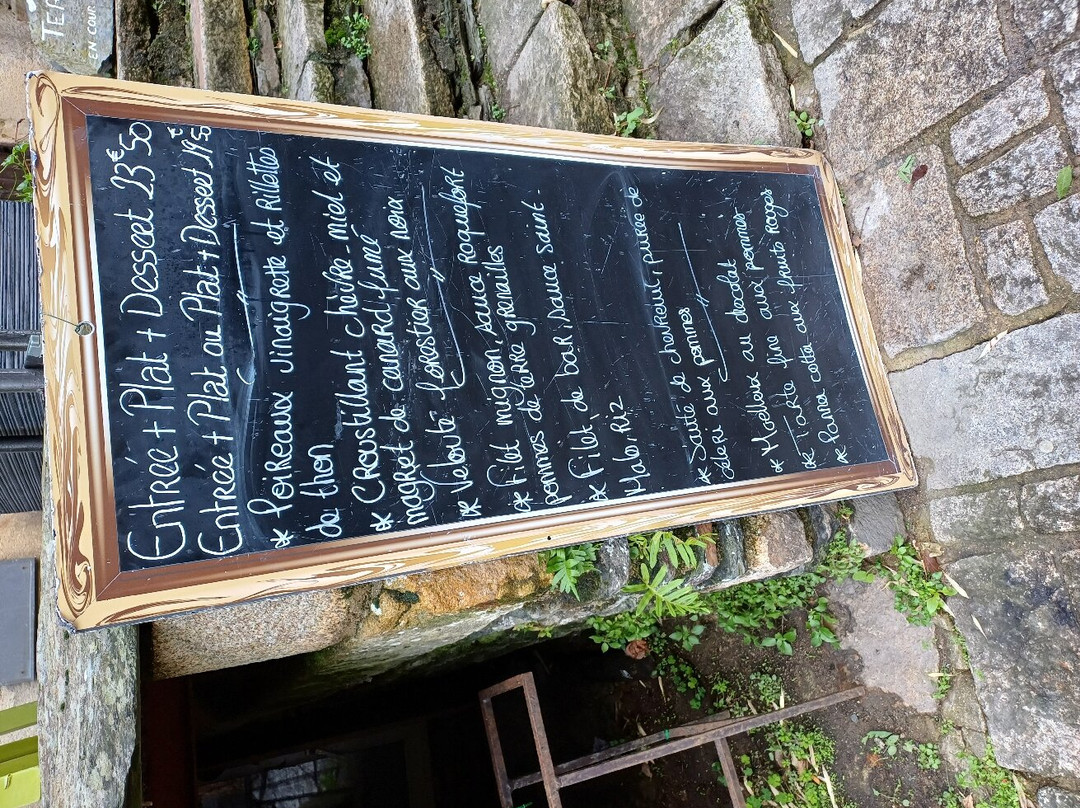 TER
EN COUR
Entrée + Plat + Dessert 23€50
Entrée + Plat ou Plat + Dessert 19€5
* Poireaux Vinaigrette et Rillettes
de thon
* Croustillant chèvre miel et
magret de canard fumé
* Velouté forestier aux noix
* Filet mignon, sauce Roquefort
pommes de terre grenailles
* Filet de bar, sauce saint-
Malo, Riz
* Sauté de chevreuil, purée de
céleri aux pommes
* Moelleux au chocolat
* Tarte fine aux pommes
* Panna cotta aux fruits rouges